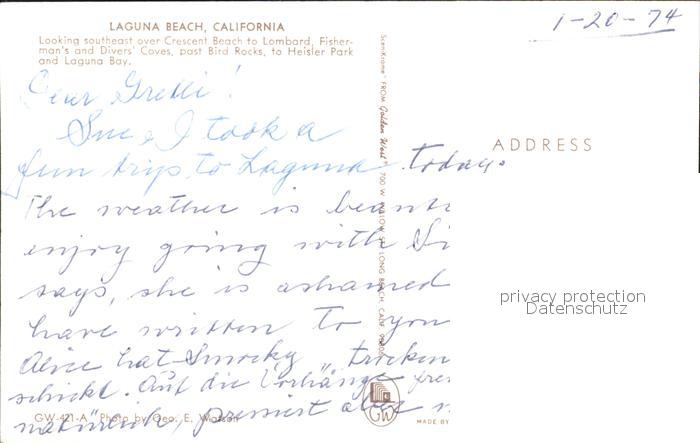 LAGUNA BEACH, CALIFORNIA
Looking southeast over Crescent Beach to Lombard, Fisher-
man's and Divers' Coves, past Bird Rocks, to Heisler Park
and Laguna Bay.
1-20-74
Dear
Sue & I took a
fun trip to Laguna today.
The weather is beauti
enjoy going with Si
says, she is ashamed
have written to you
Alice hat Smocky trocken
schickt. Auf die Vorhänge fre
natürlich, pressiert aber n
ADDRESS
privacy protection
Datenschutz
GW-421-A Photo by Geo. E. Watson
GW
MADE BY
ScenKrome FROM Golden West 700 W. WILLOW ST. LONG BEACH, CALIF.